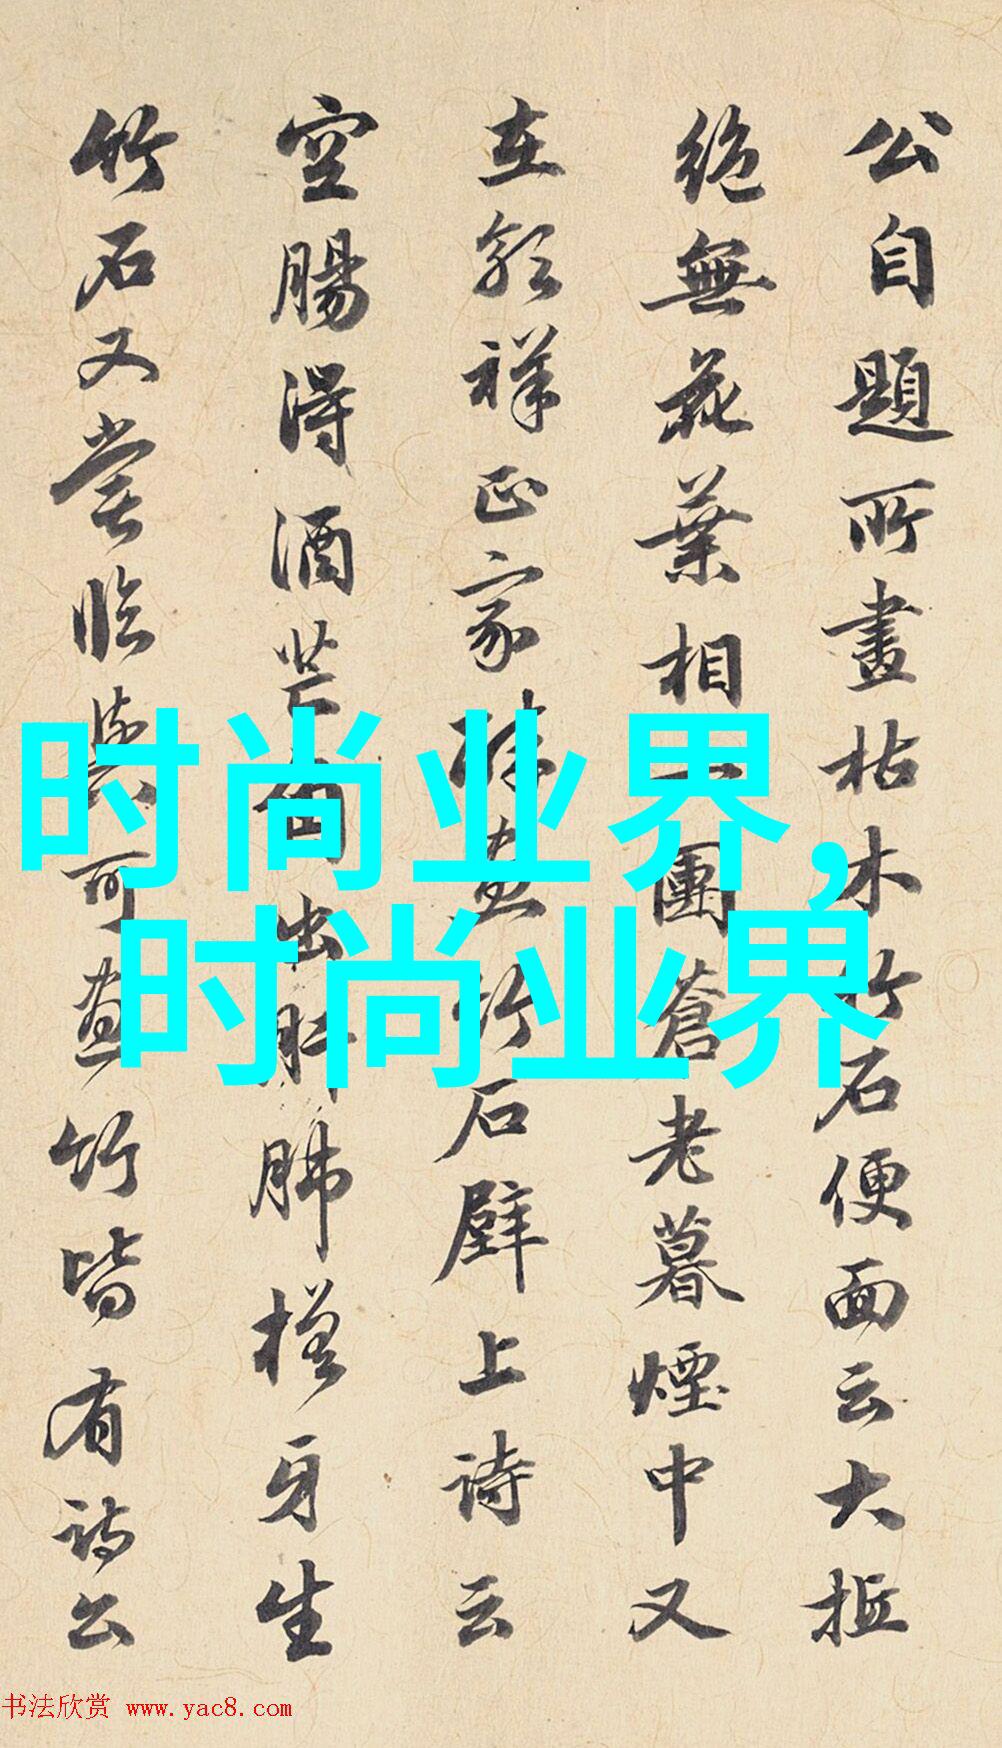 公自題所畫枯木竹石便面云大抵
絶無花葉相一團蒼老暮煙中又
在郭祥正家醉畫竹石壁上詩云
空腸得酒芒角出肝肺槎牙生
竹石又嘗臨與可畫竹皆有詩公
时尚业界，
时尚业界
书法欣赏 www.yac8.com